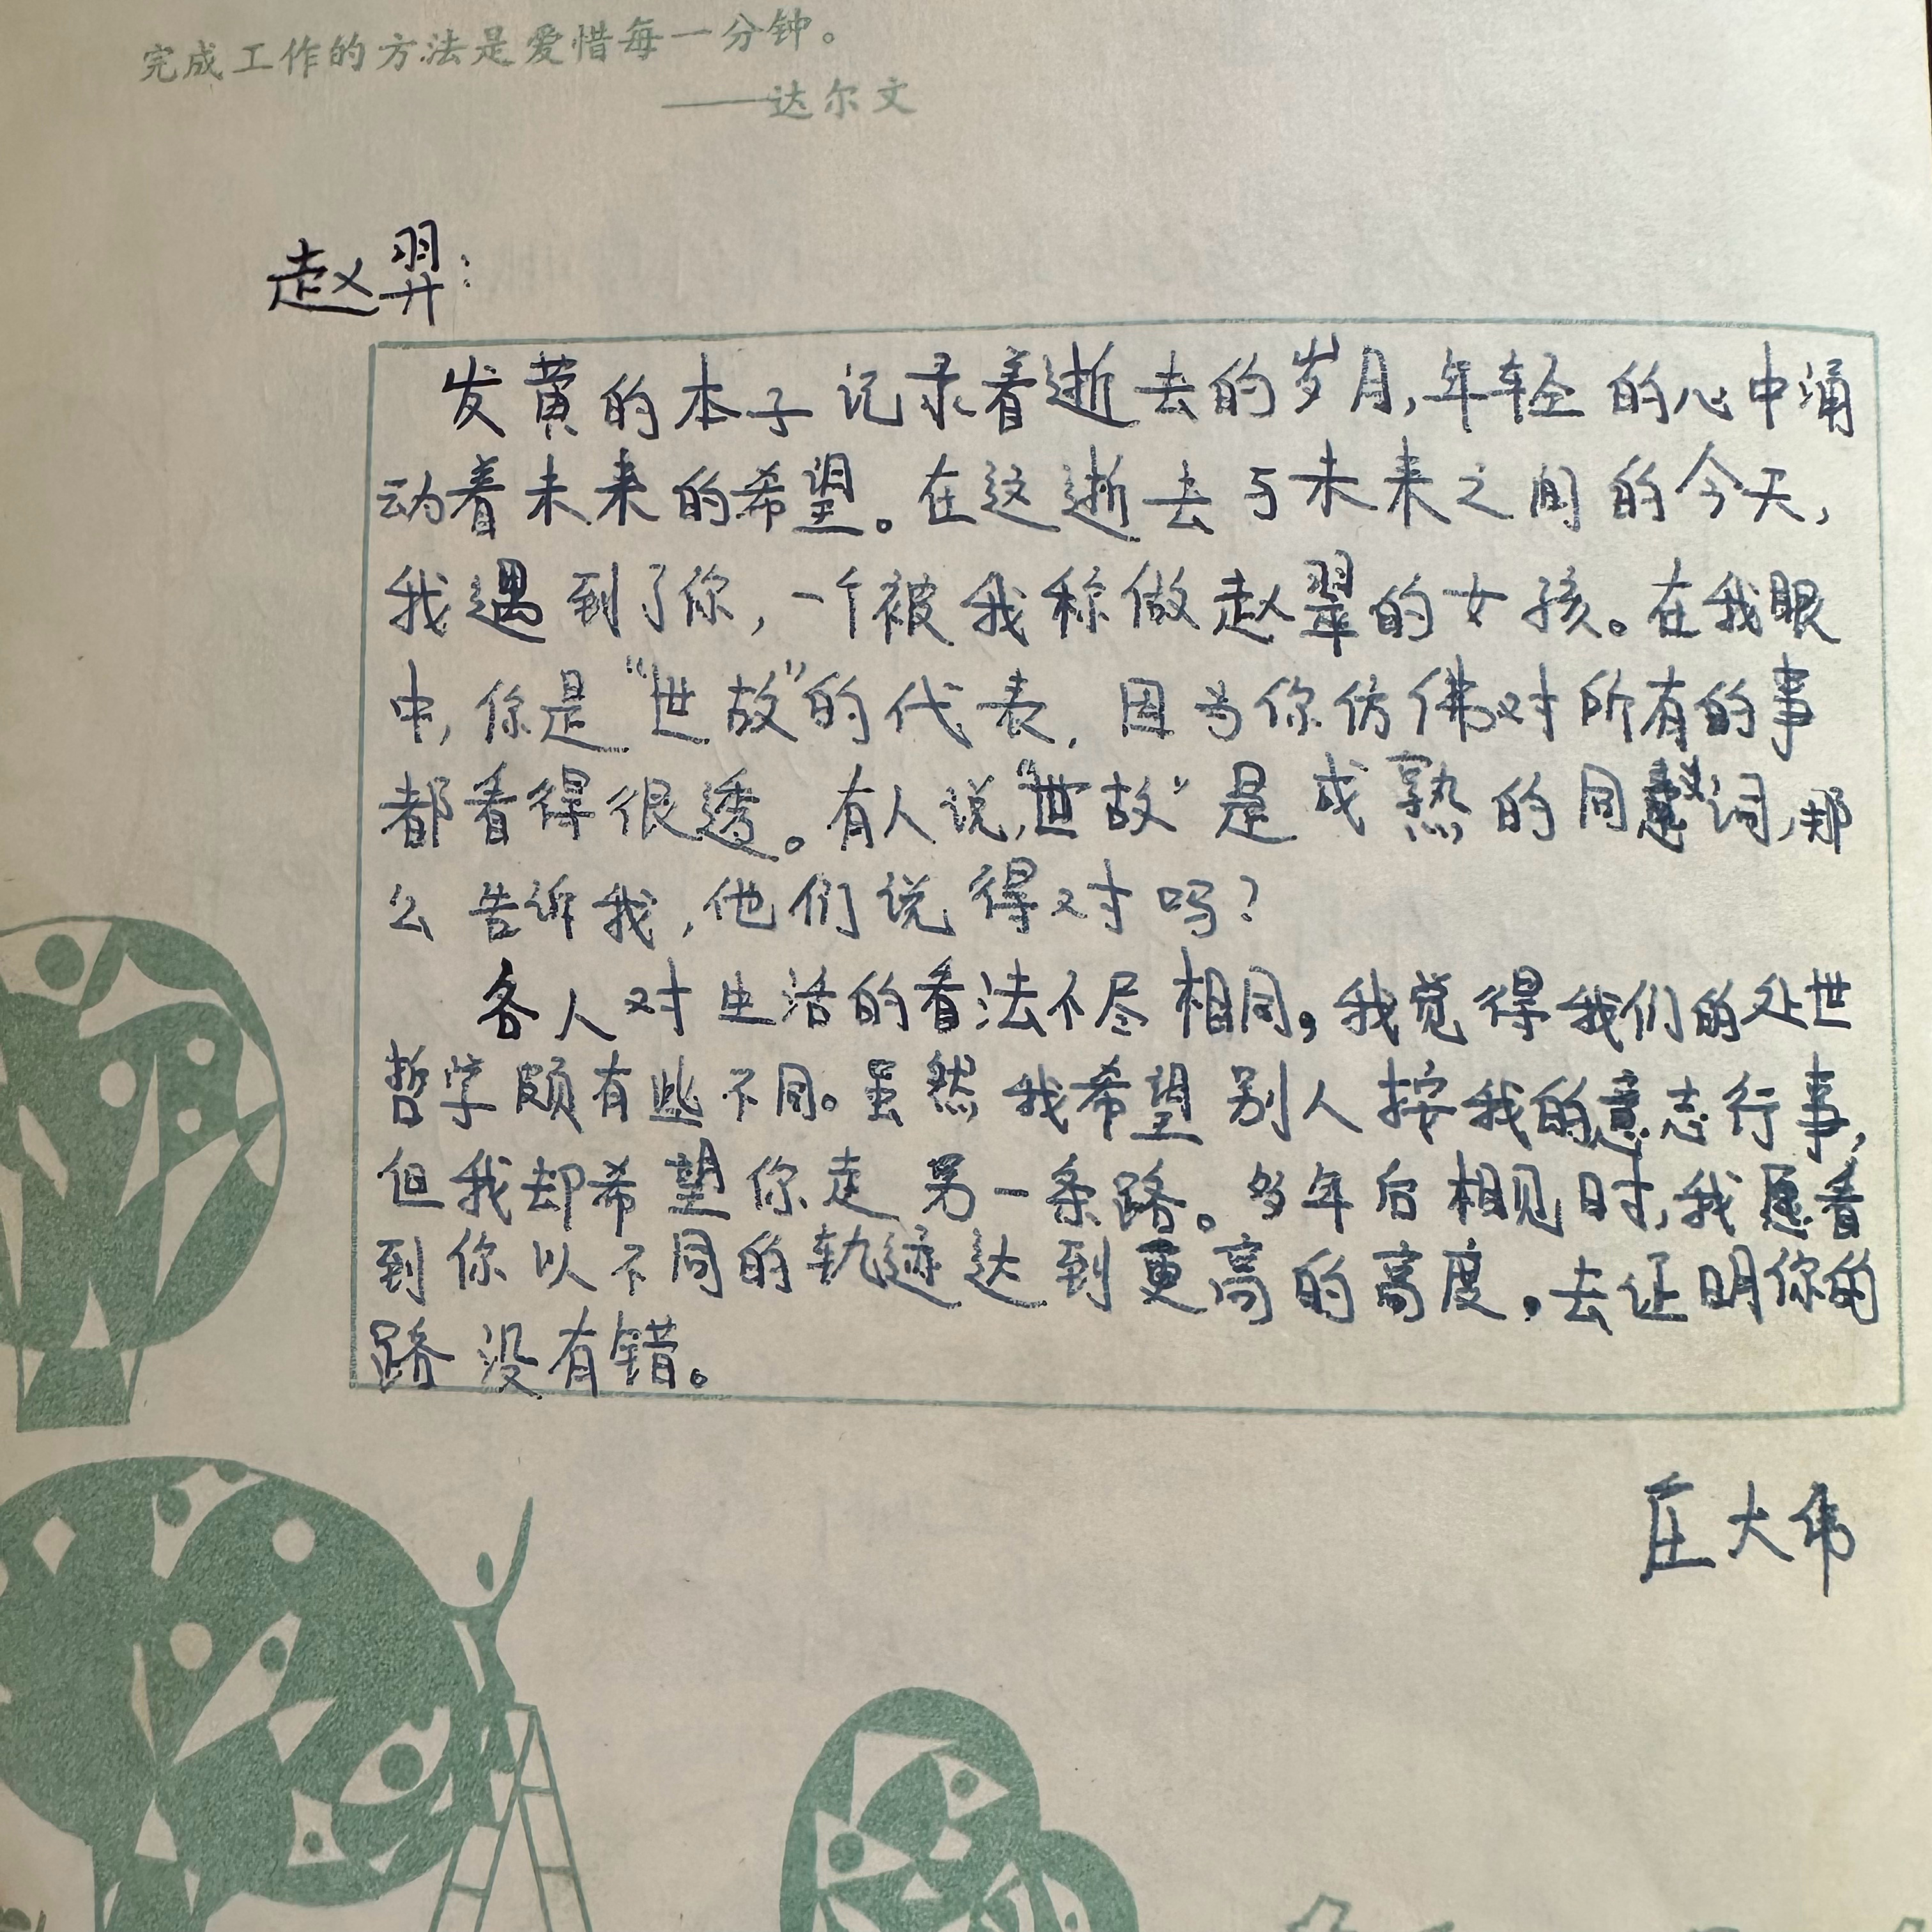 完成工作的方法是爱惜每一分钟。
——达尔文
赵羿：
发黄的本子记录着逝去的岁月,年轻的心中涌
动着未来的希望。在这逝去与未来之间的今天,
我遇到了你,一个被我称做赵翠的女孩。在我眼
中,你是“世故”的代表,因为你仿佛对所有的事
都看得很透。有人说,“世故”是成熟的同意词,那
么告诉我,他们说得对吗?
各人对生活的看法不尽相同,我觉得我们的处世
哲学颇有些不同。虽然我希望别人按我的意志行事,
但我却希望你走另一条路。多年后相见时,我愿看
到你以不同的轨迹达到更高的高度,去证明你的
路没有错。
庄大伟